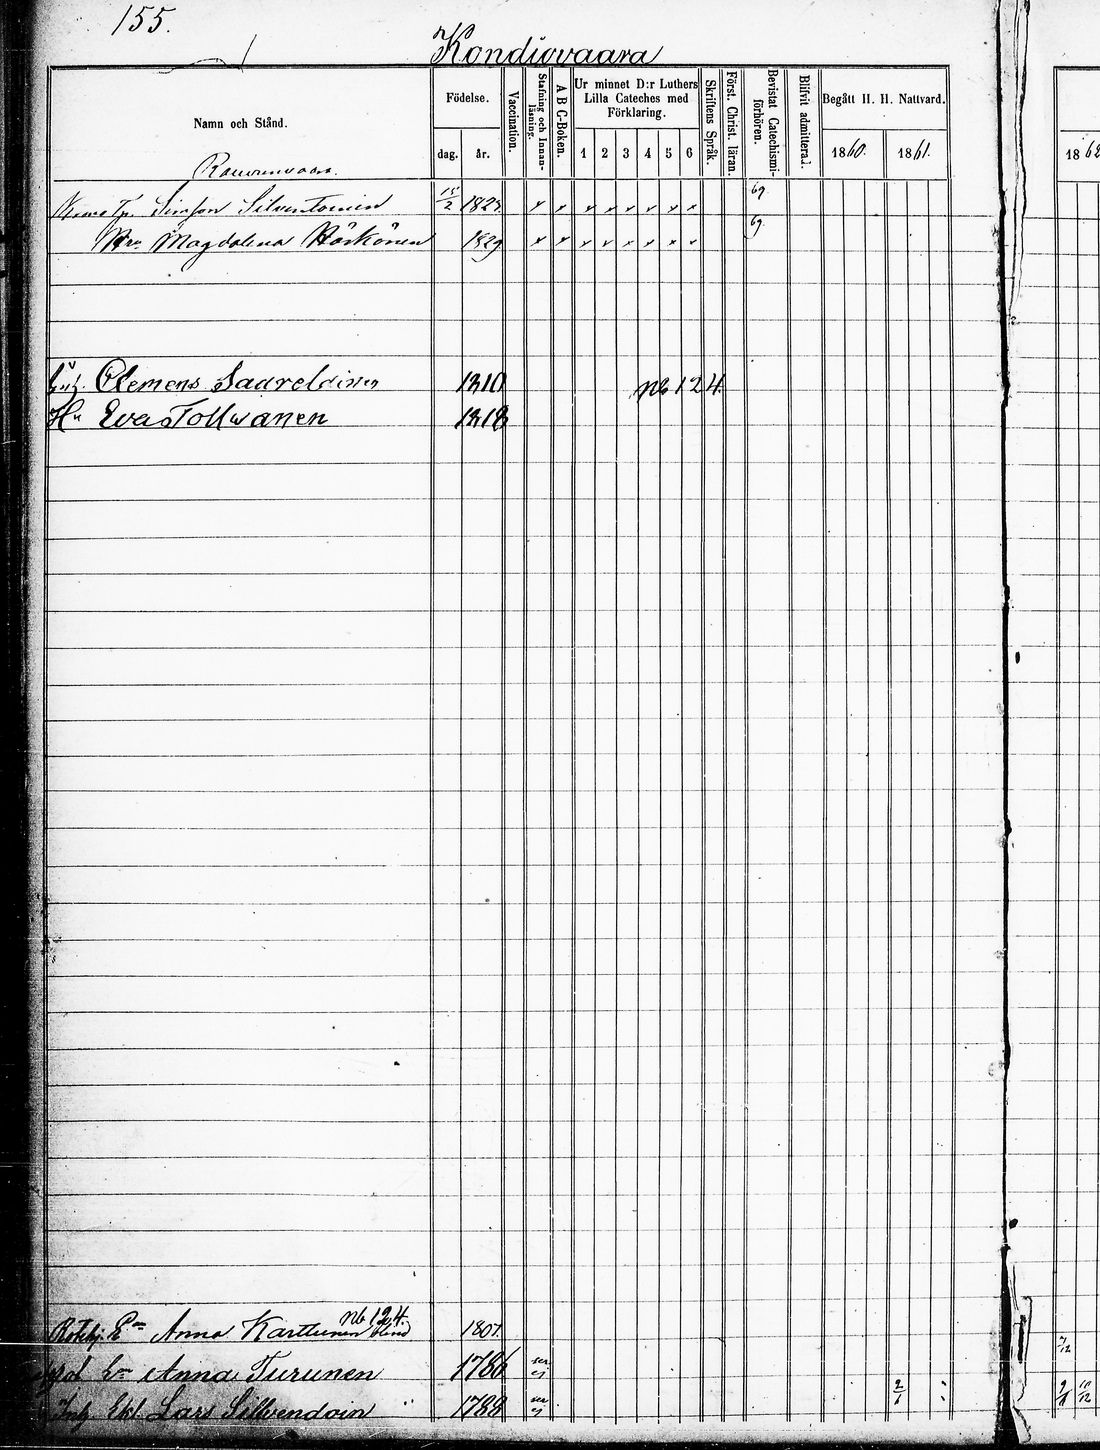 155.
Kondiovaara
Namn och Stånd.
Födelse.
dag.
år.
Vaccination.
Stafning och Innan-
läsning.
A B C-Boken.
Ur minnet D:r Luthers
Lilla Cateches med
Förklaring.
1 2 3 4 5 6
Skriftens Språk.
Först. Christ. läran.
Bevistat Catechismi-
förhören.
Blifvit admitterad.
Begått H. H. Nattvard.
1860. 1861.
1862
Simson Silventoinen 15/2 182 x x x x x x x x 69.
Magdalena Härkönen 1829 x x x x x x x x 69.
Clemens 1810 Nb 124
Hu Eva Tolwanen 1818
Nb 124.
Anna Karttunen blind 1807.
Anna Turunen 1786 ser ej
Lars Silvendoin 1788 ser ej